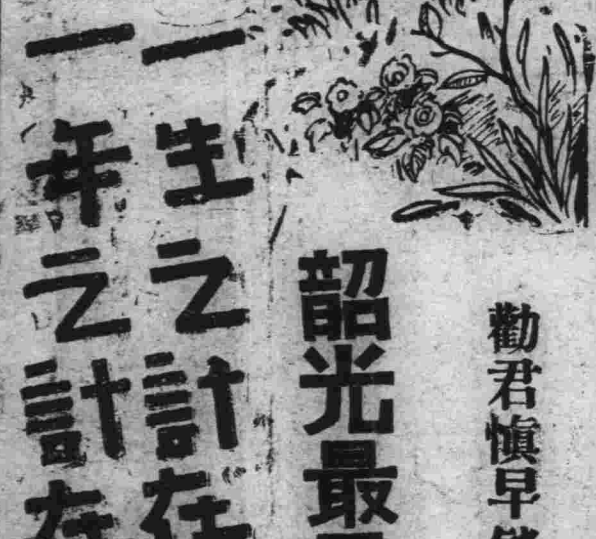 勸君慎早
韶光最
一生之計在
一年之計在